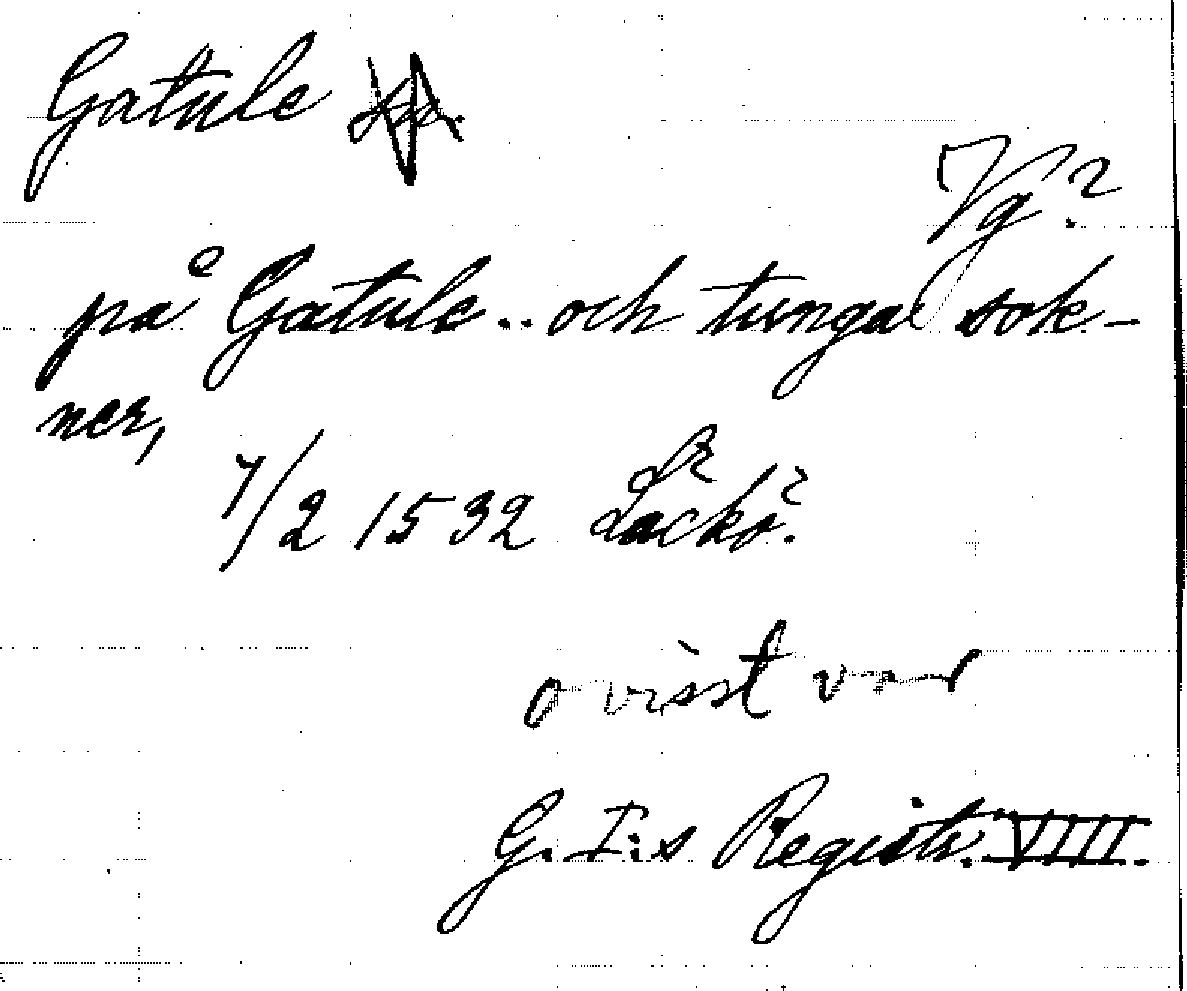 Gatule
Vg?
på Gatule.. och tunga sok-
ner,
7/2 1532 Läckö?
ovisst var
G. I:s Registr. VIIII.